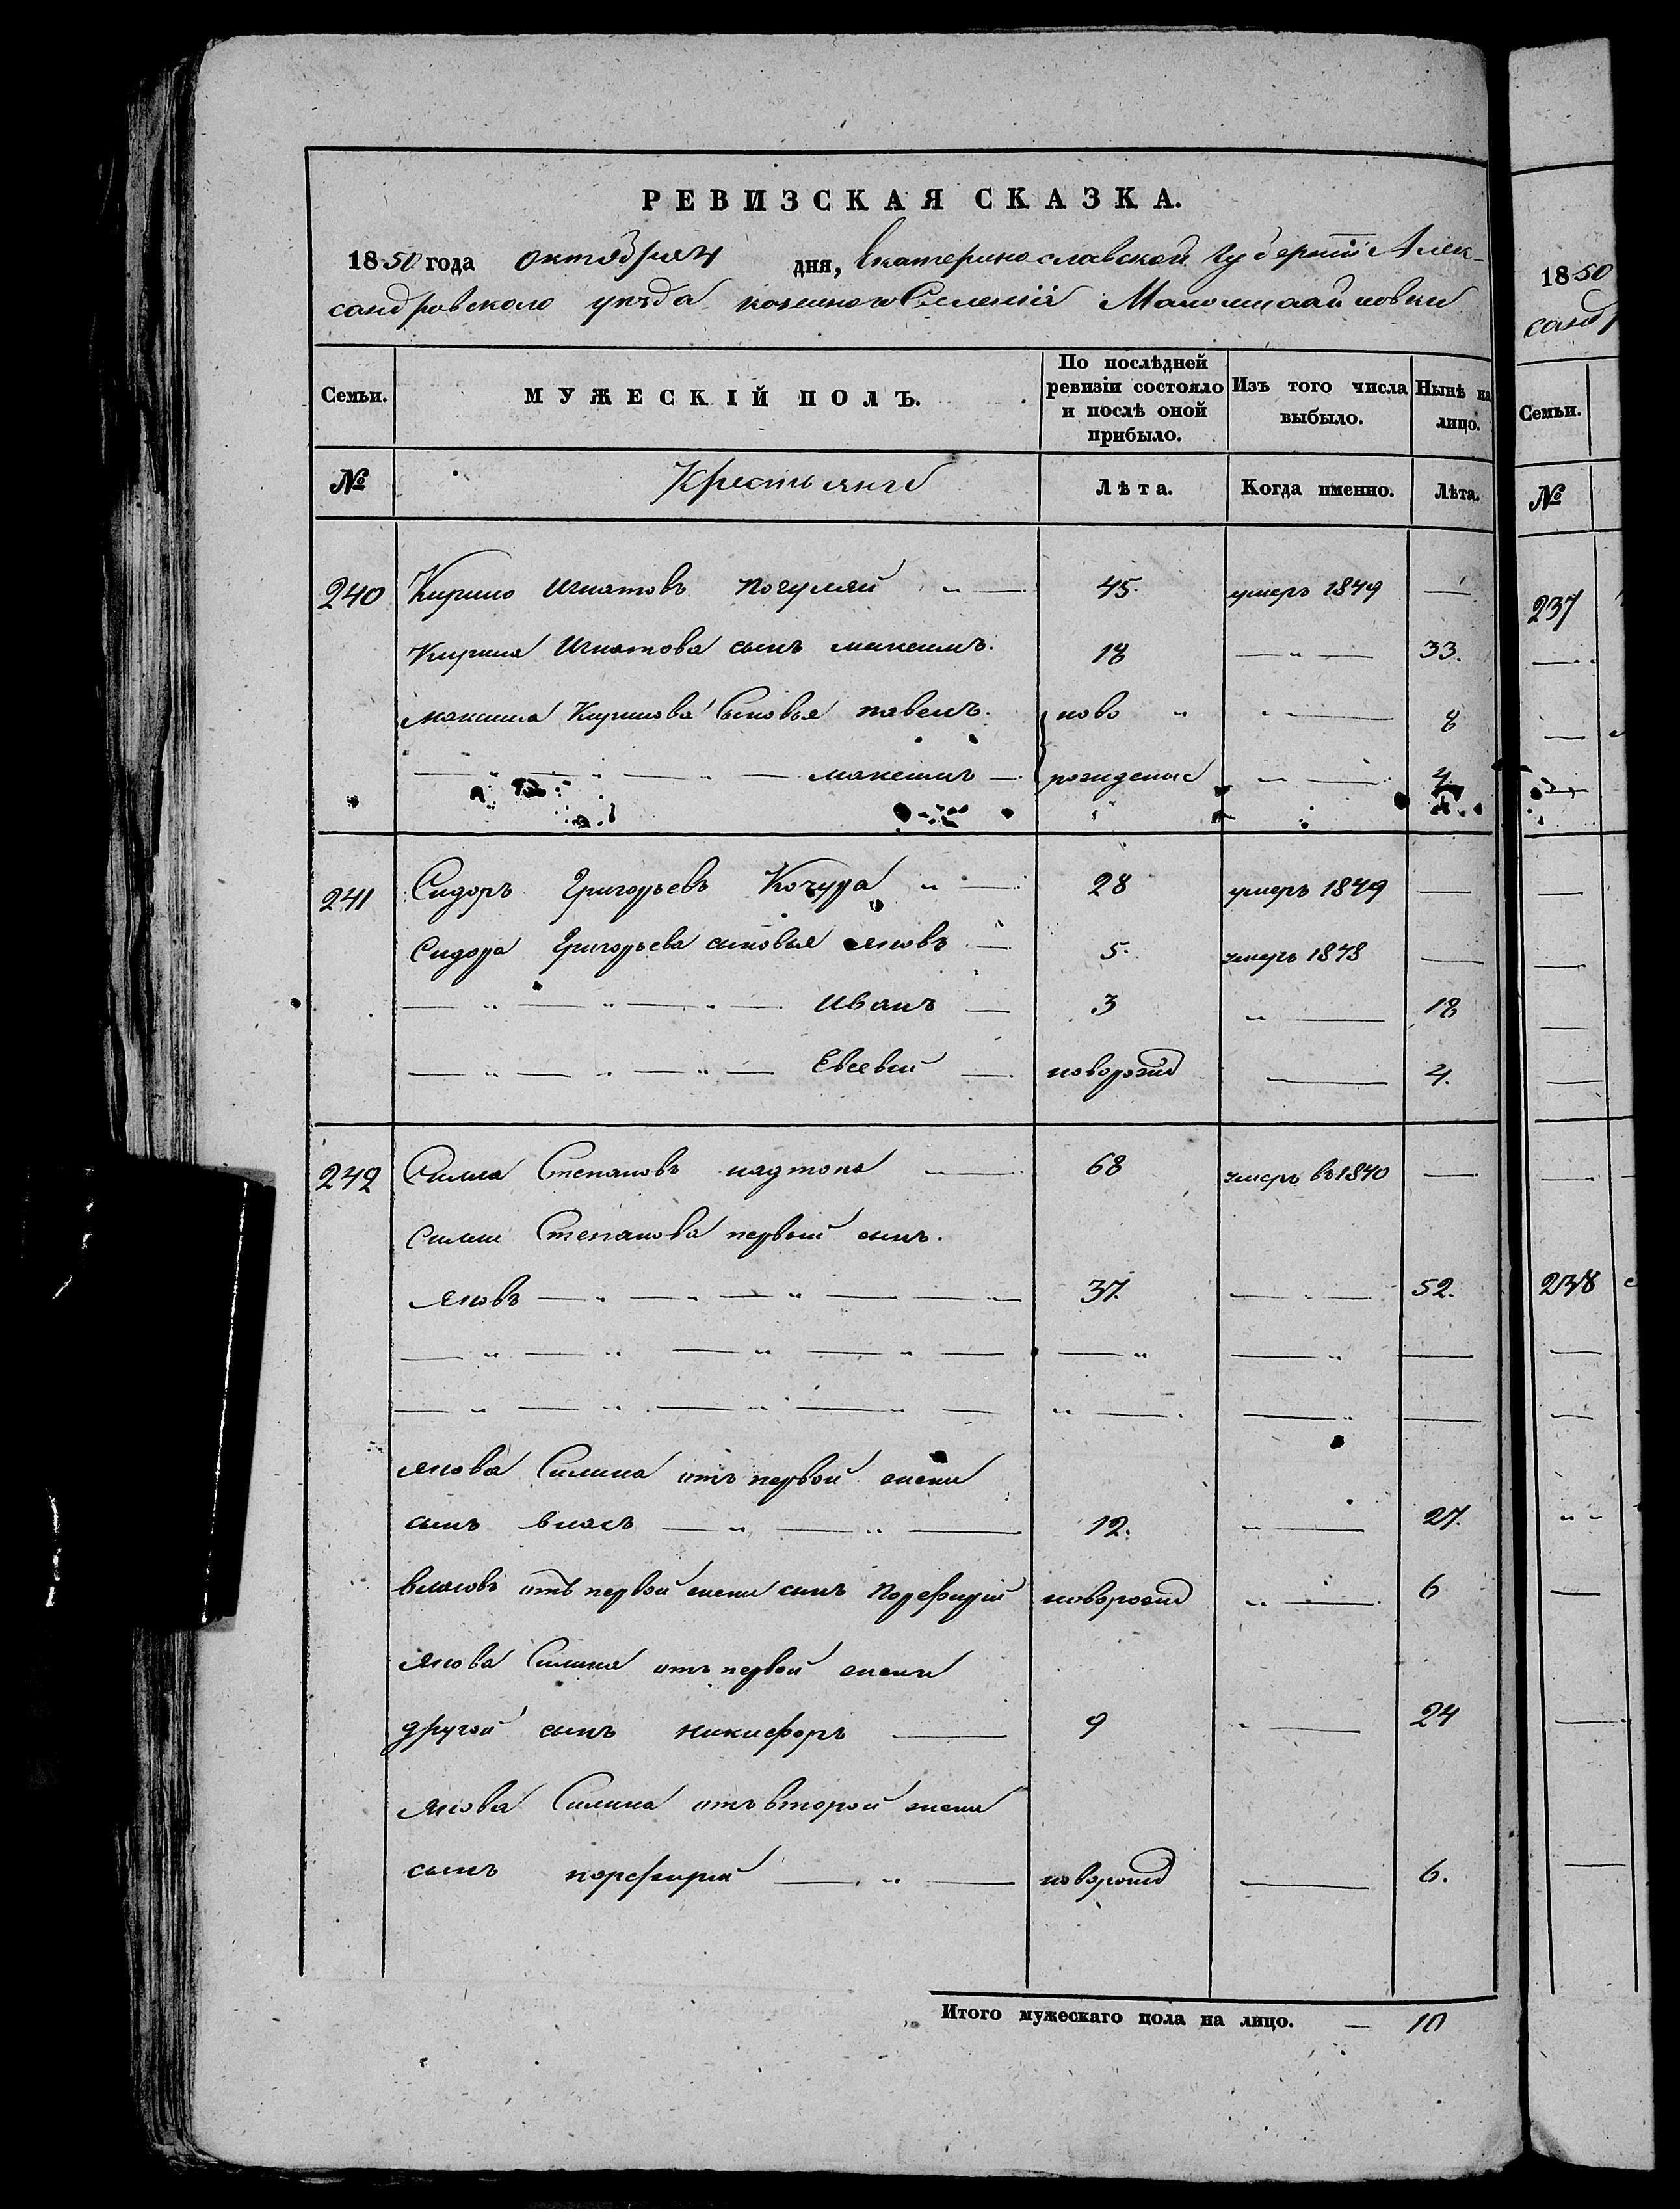 РЕВИЗСКАЯ СКАЗКА.
1850 года октября 4 дня, Екатеринославской Губернiи Алек-
сандровского уезда казенного Селенiя Маломихайловки
Семьи. МУЖЕСКІЙ ПОЛЪ. По послѣдней ревизіи состояло и послѣ оной прибыло. Изъ того числа выбыло. Нынѣ на лицо.
№ Крестьяне Лѣта. Когда именно. Лѣта.
240 Кирило Игнатовъ 45. умеръ 1849 —
Кирила Игнатова сынъ максимъ. 18 — " — 33.
максима Кирилова Сыновья павелъ. ново " " — 8
— " — " — " — максимъ — рожденые " — 4.
241 Сидоръ Григорьевъ Кочура " — 28 умеръ 1849 —
Сидора Григорьева сыновья яковъ — 5. умеръ 1848 —
— " — " — " — Иванъ — 3 " — 18
— " — " — " — Евсевий — новорожд — 4.
242 Сила Степановъ надтока " — 68 умеръ въ 1840 —
Силы Степанова первый сынъ.
яковъ — " — " — " — 37. — " — 52.
— " — " — " — " — — " — " —
— " — " — " — " — " — — " —
якова Силина отъ первой жены
сынъ власъ — " — " — 12. " — 27.
власовъ отъ первой жены сынъ Порфирiй новорожд " — 6
якова Силина отъ первой жены
другой сынъ никифоръ — 9 " — 24
якова Силина отъ второй жены
сынъ порефирий — " — новорожд — 6.
Итого мужескаго пола на лицо. — 10
1850
санд
Семьи.
№
237
238